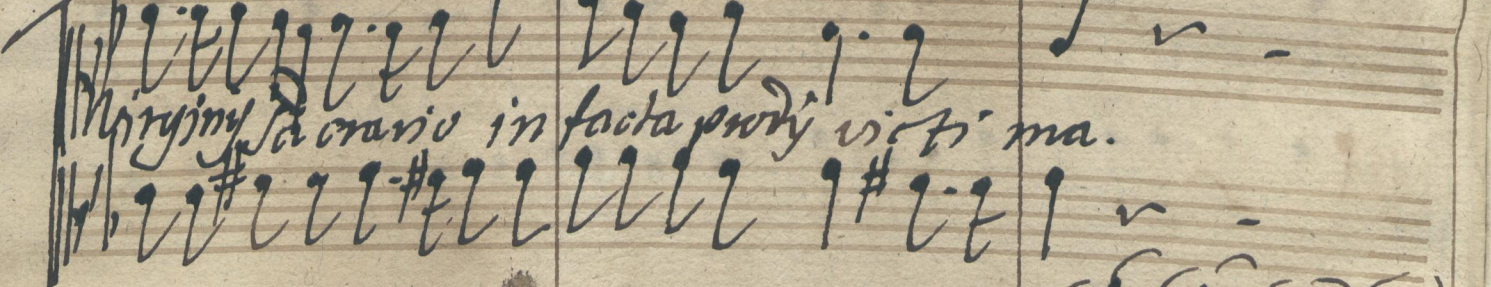 Virginy Sacrario intacta prodÿ victima.